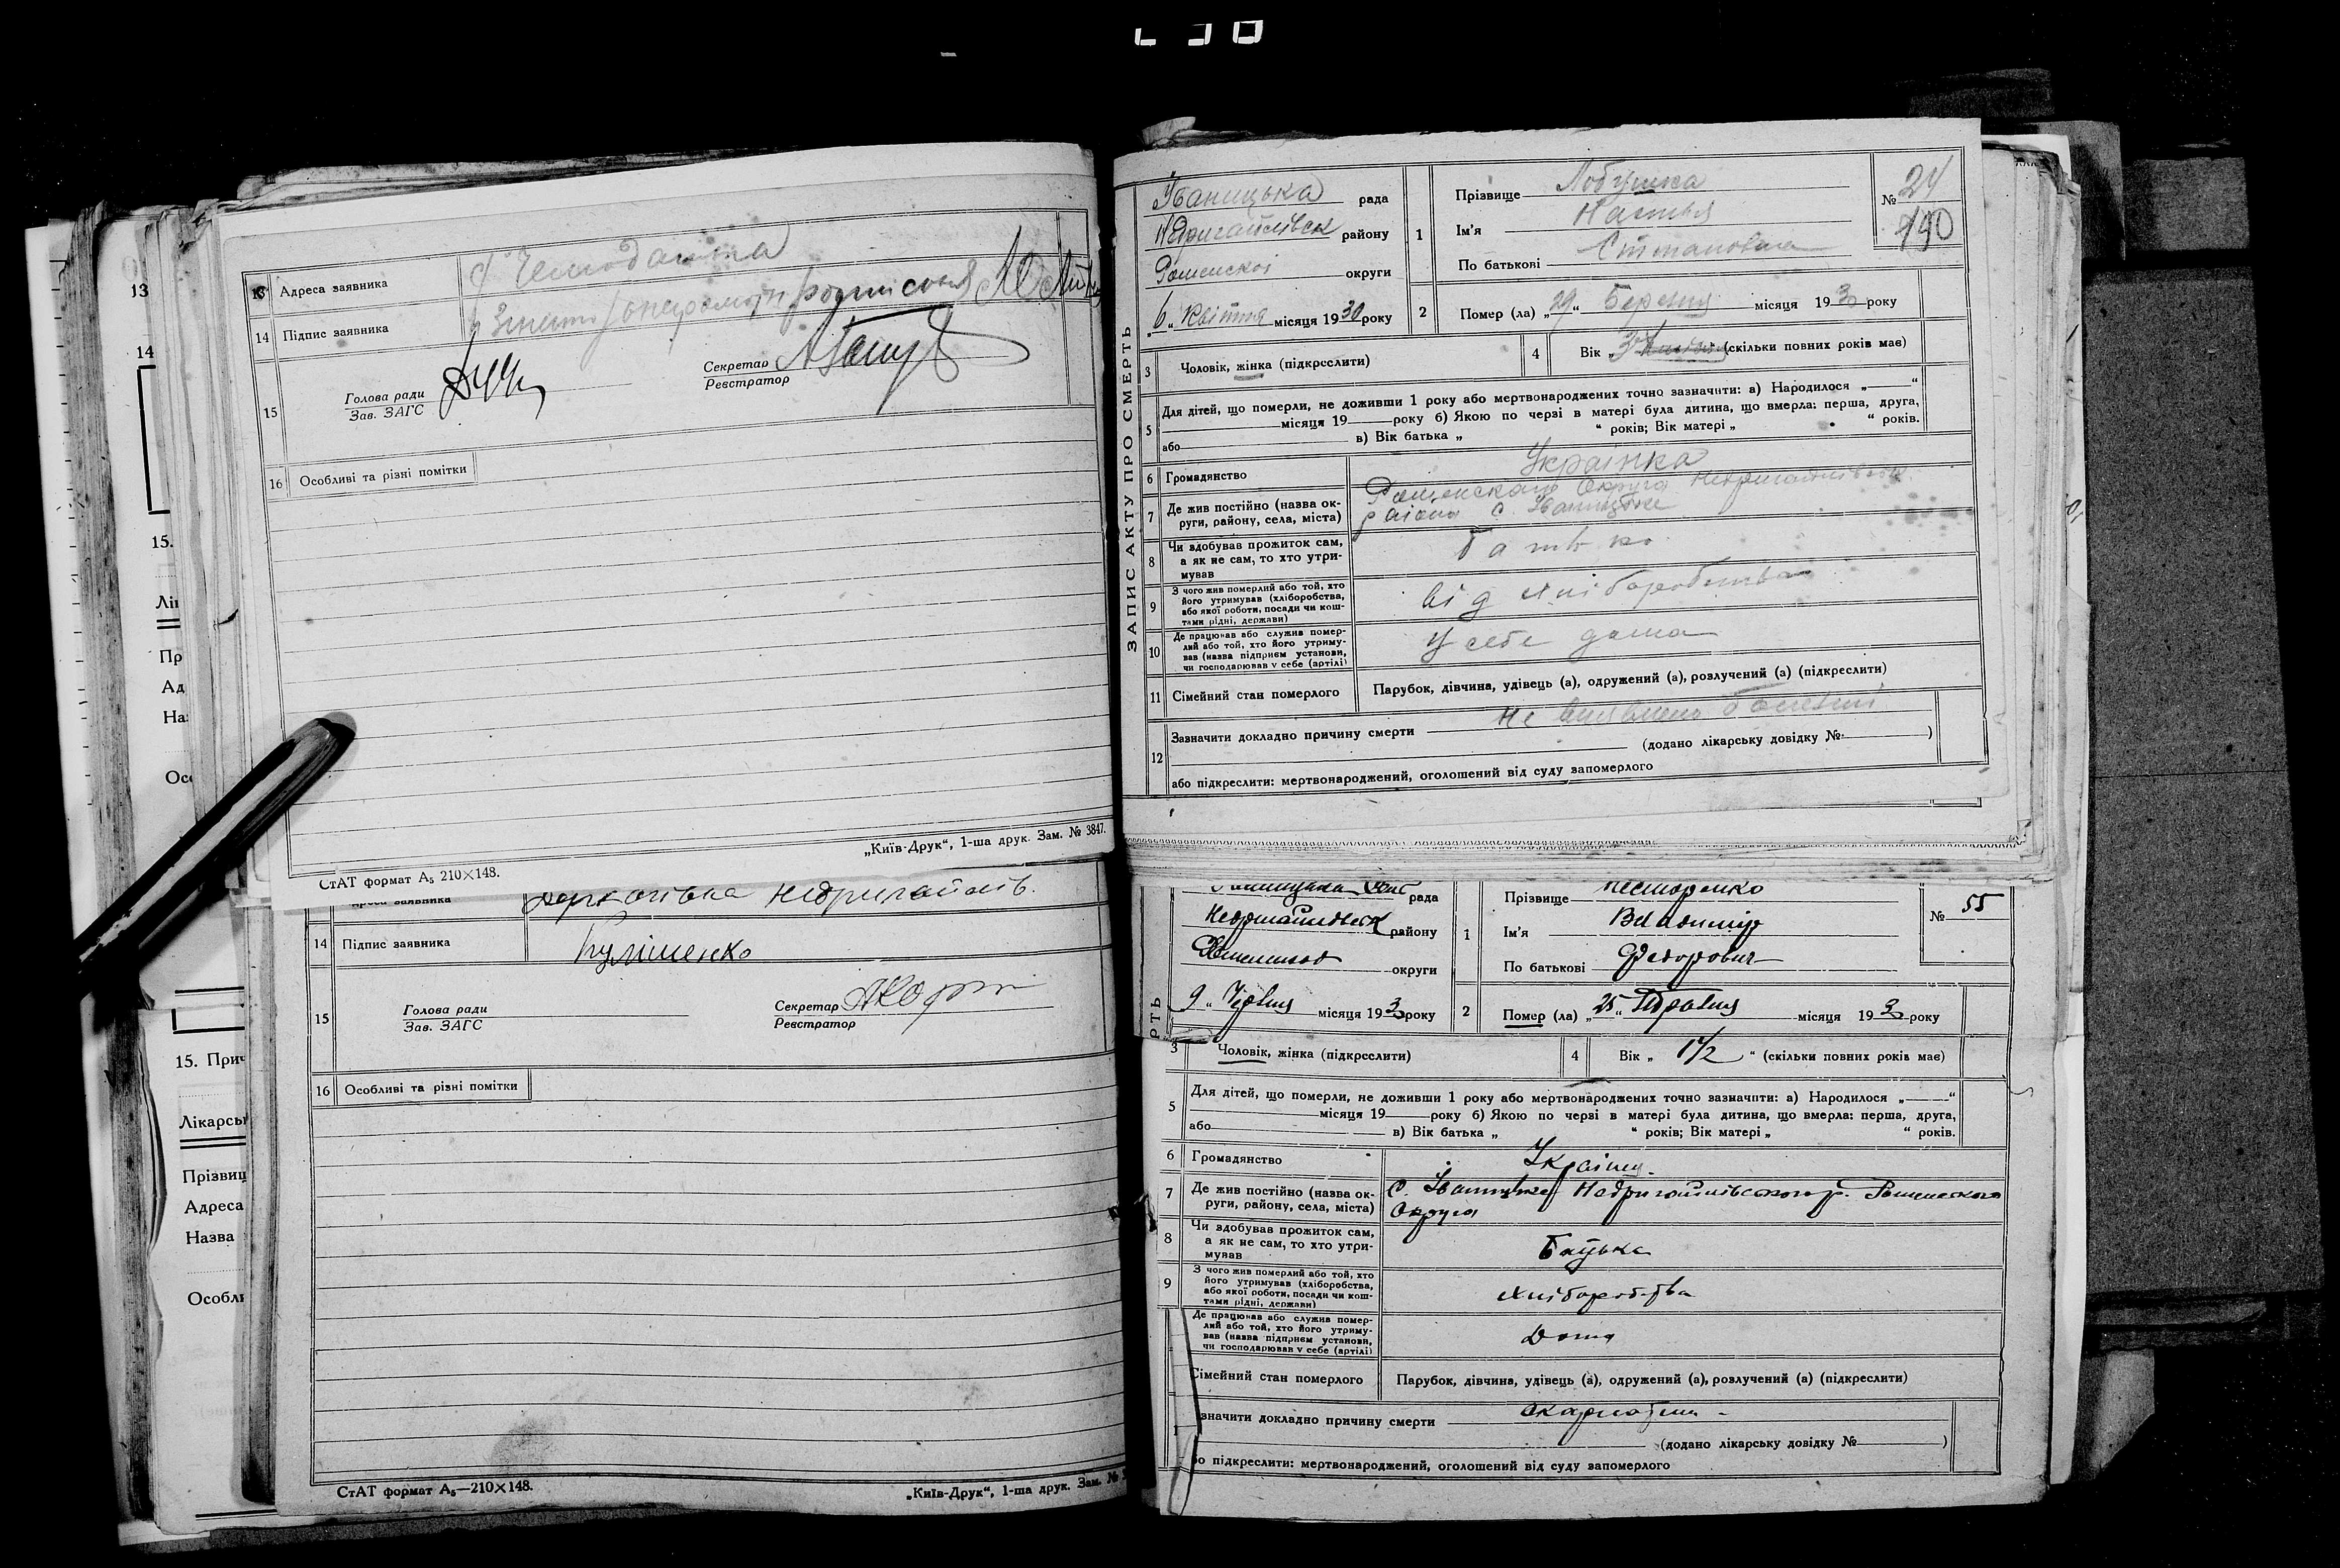 13 Адреса заявника с Чемоданівка
14 Підпис заявника
15 Голова ради
Зав. ЗАГС
Секретар
Реєстратор
16 Особливі та різні помітки
„Київ-Друк“, 1-ша друк. Зам. № 3847.
СтАТ формат А₅ 210×148.
адреса заявника Недригайлів.
14 Підпис заявника Кулішенко
15 Голова ради
Зав. ЗАГС
Секретар
Реєстратор
16 Особливі та різні помітки
СтАТ формат А₅—210×148.
„Київ-Друк“, 1-ша друк. Зам. №
13
14
15.
Лі
Пр
Ад
На
Осо
15. Прич
Лікарсь
Прізвищ
Адреса
Назва
Особл
ЗАПИС АКТУ ПРО СМЕРТЬ
Іваницька рада
Недригайлівськ району
Роменскої округи
„6“ Квітня місяця 1930 року
1 Прізвище
Ім'я Настья
По батькові Степановна
№ 24
190
2 Помер (ла) „29“ Березня місяця 1930 року
3 Чоловік, жінка (підкреслити)
4 Вік „3“ (скільки повних років має)
5 Для дітей, що померли, не доживши 1 року або мертвонароджених точно зазначити: а) Народилося „ “
місяця 19 року б) Якою по черзі в матері була дитина, що вмерла: перша, друга,
або в) Вік батька „ “ років; Вік матері „ “ років.
6 Громадянство Українка
7 Де жив постійно (назва ок-
руги, району, села, міста)
Роменского Округа Недригайлівськ.
района с. Іваницьке
8 Чи здобував прожиток сам,
а як не сам, то хто утри-
мував
батько
9 З чого жив померлий або той, хто
його утримував (хліборобства,
або якої роботи, посади чи кош-
тами рідні, держави)
від хліборобства
10 Де працював або служив помер-
лий або той, хто його утриму-
вав (назва підприєм установи,
чи господарював у себе (артілі)
У себе дома
11 Сімейний стан померлого Парубок, дівчина, удівець (а), одружений (а), розлучений (а) (підкреслити)
12 Зазначити докладно причину смерти не виявлено болезні
(додано лікарську довідку № )
або підкреслити: мертвонароджений, оголошений від суду запомерлого
РТЬ
рада
Недригайлівськ району
округи
9 „ Червня місяця 193 року
1 Прізвище Нестеренко
Ім'я Владимир
По батькові Федорович
№ 55
2 Помер (ла) „25“ Травня місяця 193 року
3 Чоловік, жінка (підкреслити)
4 Вік „ 1½ “ (скільки повних років має)
5 Для дітей, що померли, не доживши 1 року або мертвонароджених точно зазначити: а) Народилося „ “
місяця 19 року б) Якою по черзі в матері була дитина, що вмерла: перша, друга,
або в) Вік батька „ “ років; Вік матері „ “ років.
6 Громадянство
7 Де жив постійно (назва ок-
руги, району, села, міста)
С. Іваницьке Недригайлівського р. Роменского
Округа
8 Чи здобував прожиток сам,
а як не сам, то хто утри-
мував
Батька
9 З чого жив померлий або той, хто
його утримував (хліборобства,
або якої роботи, посади чи кош-
тами рідні, держави)
хліборобства
Де працював або служив помер-
лий або той, хто його утриму-
вав (назва підприєм установи,
чи господарював у себе (артілі)
Дома
Сімейний стан померлого Парубок, дівчина, удівець (а), одружений (а), розлучений (а) (підкреслити)
значити докладно причину смерти
(додано лікарську довідку № )
бо підкреслити: мертвонароджений, оголошений від суду запомерлого